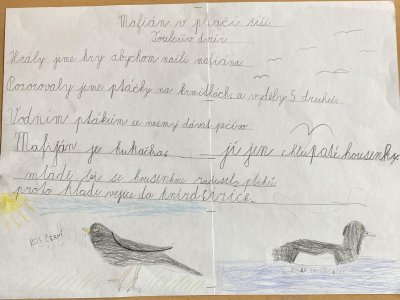 Mafián v ptačí říši
Toulcův dvůr
Hrály jsme hry abychom našli mafiána
Pozorovaly jsme ptáčky na krmítkách, a viděly 5 druhů.
Vodním ptákům se nesmý dávat pečivo.
Mafiján je kukačka, jí jen chlupaté housenky
mládě se housenkou
proto klade vejce do hnízd
KOS ČERNÍ